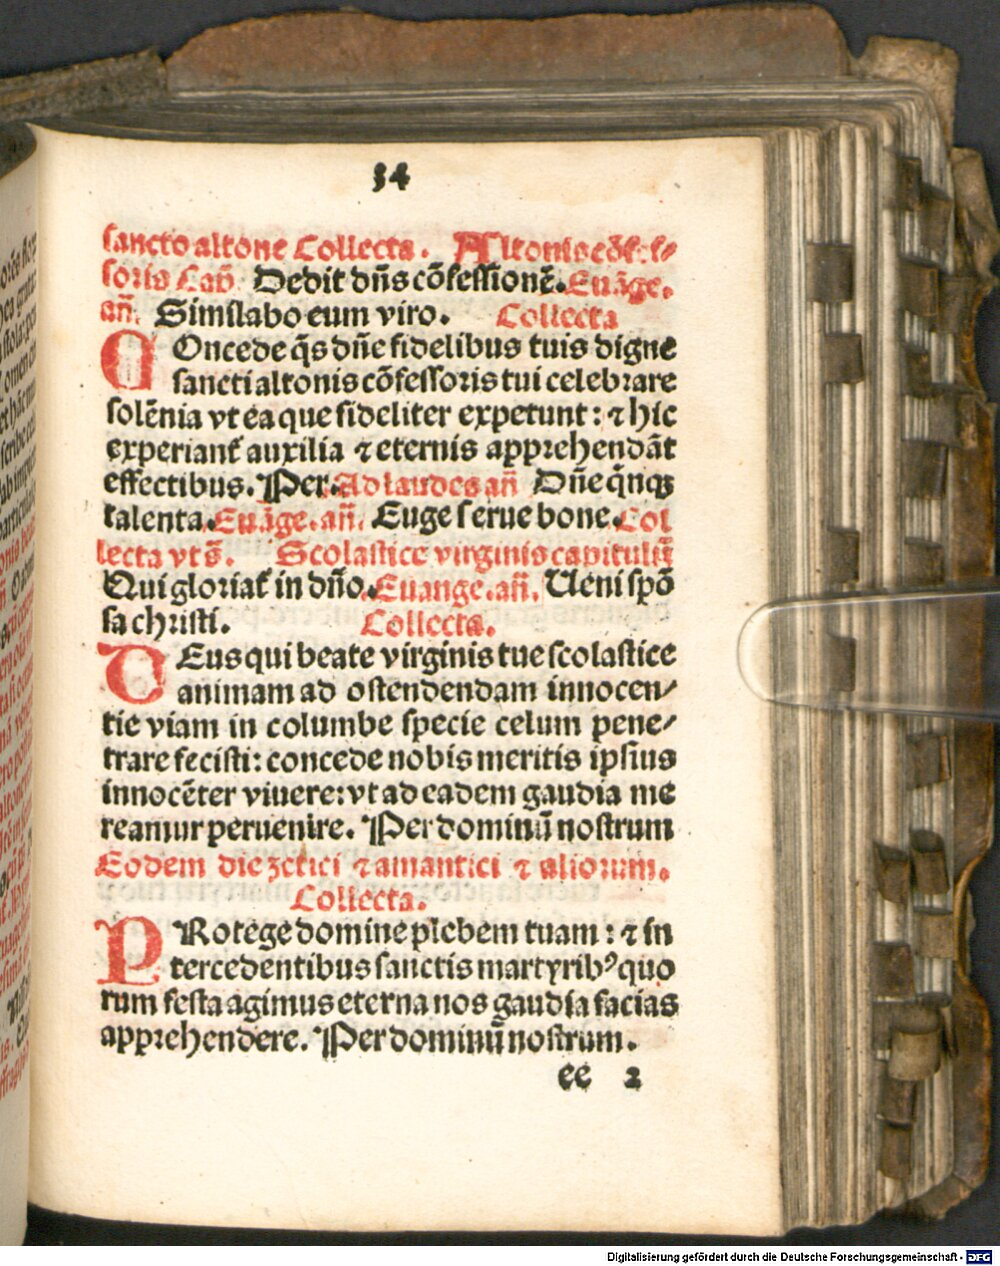 34
sancto altone Collecta. Altonis cōfes-
soris Cap̄. Dedit dn̄s cōfessionē. Euāge.
an̄. Similabo eum viro. Collecta
COncede q̄s dn̄e fidelibus tuis digne
sancti altonis cōfessoris tui celebrare
solēnia vt ea que fideliter expetunt: ⁊ hic
experiant̄ auxilia ⁊ eternis apprehendāt
effectibus. Per. Ad laudes an̄ Dn̄e q̄nqꝫ
talenta. Euāge. an̄. Euge serue bone. Col
lecta vt s̄. Scolastice virginis capitulū
Qui gloriat̄ in dn̄o. Euange. an̄. Ueni spō
sa christi. Collecta.
DEus qui beate virginis tue scolastice
animam ad ostendendam innocen-
tie viam in columbe specie celum pene-
trare fecisti: concede nobis meritis ipsius
innocēter viuere: vt ad eadem gaudia me
reamur peruenire. Per dominū nostrum
Eodem die zetici ⁊ amantici ⁊ aliorum.
Collecta.
PRotege domine plebem tuam: ⁊ in
tercedentibus sanctis martyribꝰ quo
rum festa agimus eterna nos gaudia facias
apprehendere. Per dominū nostrum.
ee 2
Digitalisierung gefördert durch die Deutsche Forschungsgemeinschaft - DFG